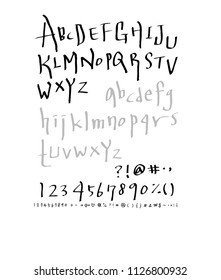 ABCDEFGHIJU
KLMNOPQRSTV
WXYZ abcdefg
hijklmnopqrs
tuvwxyz
?!@#:,
1234567890%()
www.shutterstock.com · 1126800932